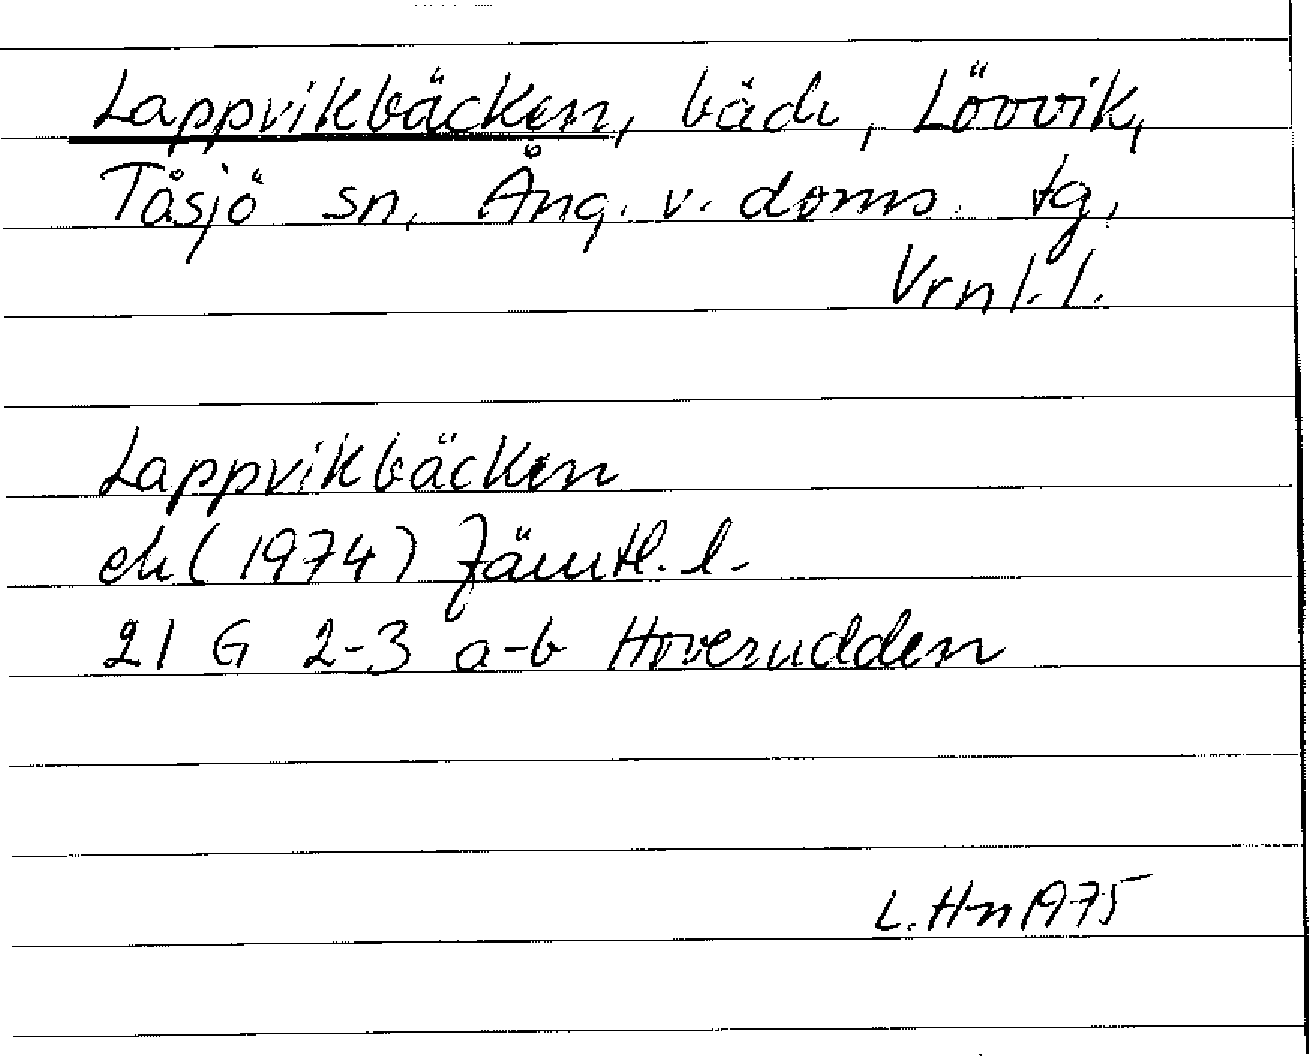 Lappvikbäcken, bäck, Lövvik,
Tåsjö sn, Ång. v. doms. tg,
Vrnl. l.
Lappvikbäcken
ek (1974) Jämtl. l.
21 G 2-3 a-b Hoverudden
L. Hn 1975